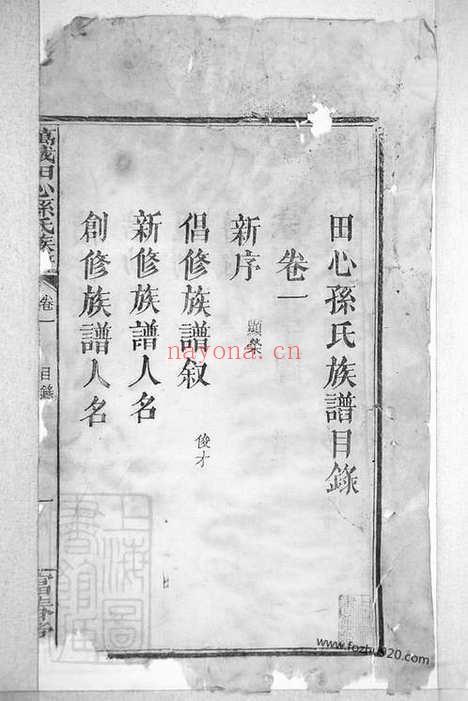 田心孫氏族譜目錄
卷一
新序 顯榮
倡修族譜叙 俊才
新修族譜人名
創修族譜人名
萬載田心孫氏族譜
卷一
目錄
一
富春堂
上海圖書館藏
nayona.cn
www.fozhu920.com